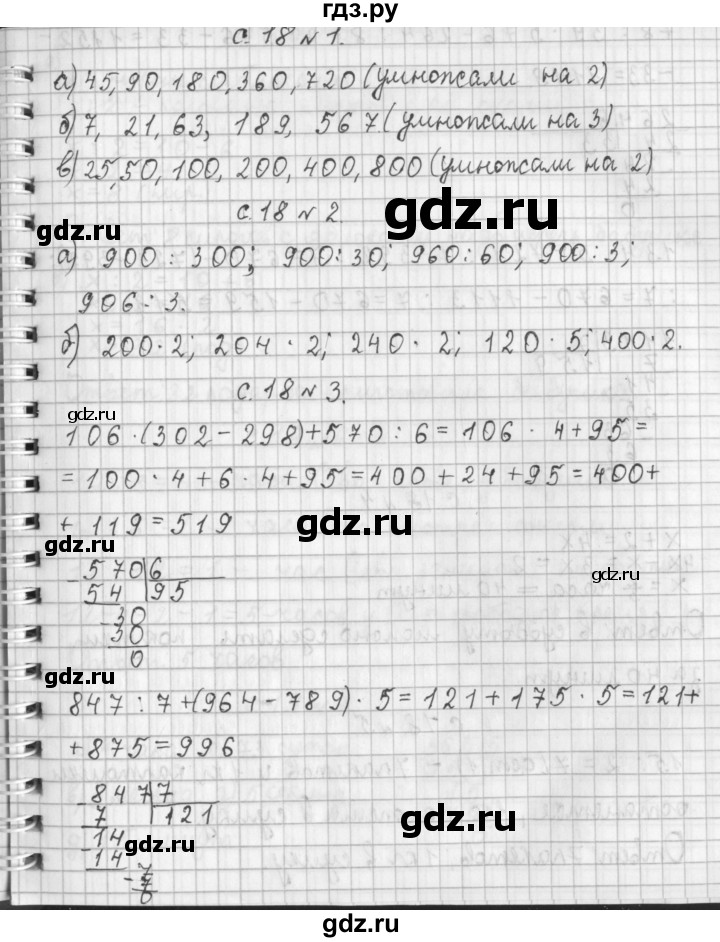 гдз.ру
с. 18 № 1.
а) 45, 90, 180, 360, 720 (умножали на 2)
б) 7, 21, 63, 189, 567 (умножали на 3)
в) 25, 50, 100, 200, 400, 800 (умножали на 2)
с. 18 № 2.
gdz.ru
gdz.ru
а) 900 : 300; 900 : 30; 960 : 60; 900 : 3;
906 : 3.
б) 200 · 2; 204 · 2; 240 · 2; 120 · 5; 400 · 2.
с. 18 № 3.
gdz.ru
gdz.ru
106 · (302 - 298) + 570 : 6 = 106 · 4 + 95 =
= 100 · 4 + 6 · 4 + 95 = 400 + 24 + 95 = 400 +
+ 119 = 519
gdz.ru
gdz.ru
- 570 6
54 95
- 30
30
0
gdz.ru
gdz.ru
847 : 7 + (964 - 789) · 5 = 121 + 175 · 5 = 121 +
+ 875 = 996
gdz.ru
- 847 7
7 121
- 14
14
- 7
7
0
gdz.ru
gdz.ru
gdz.ru
gdz.ru